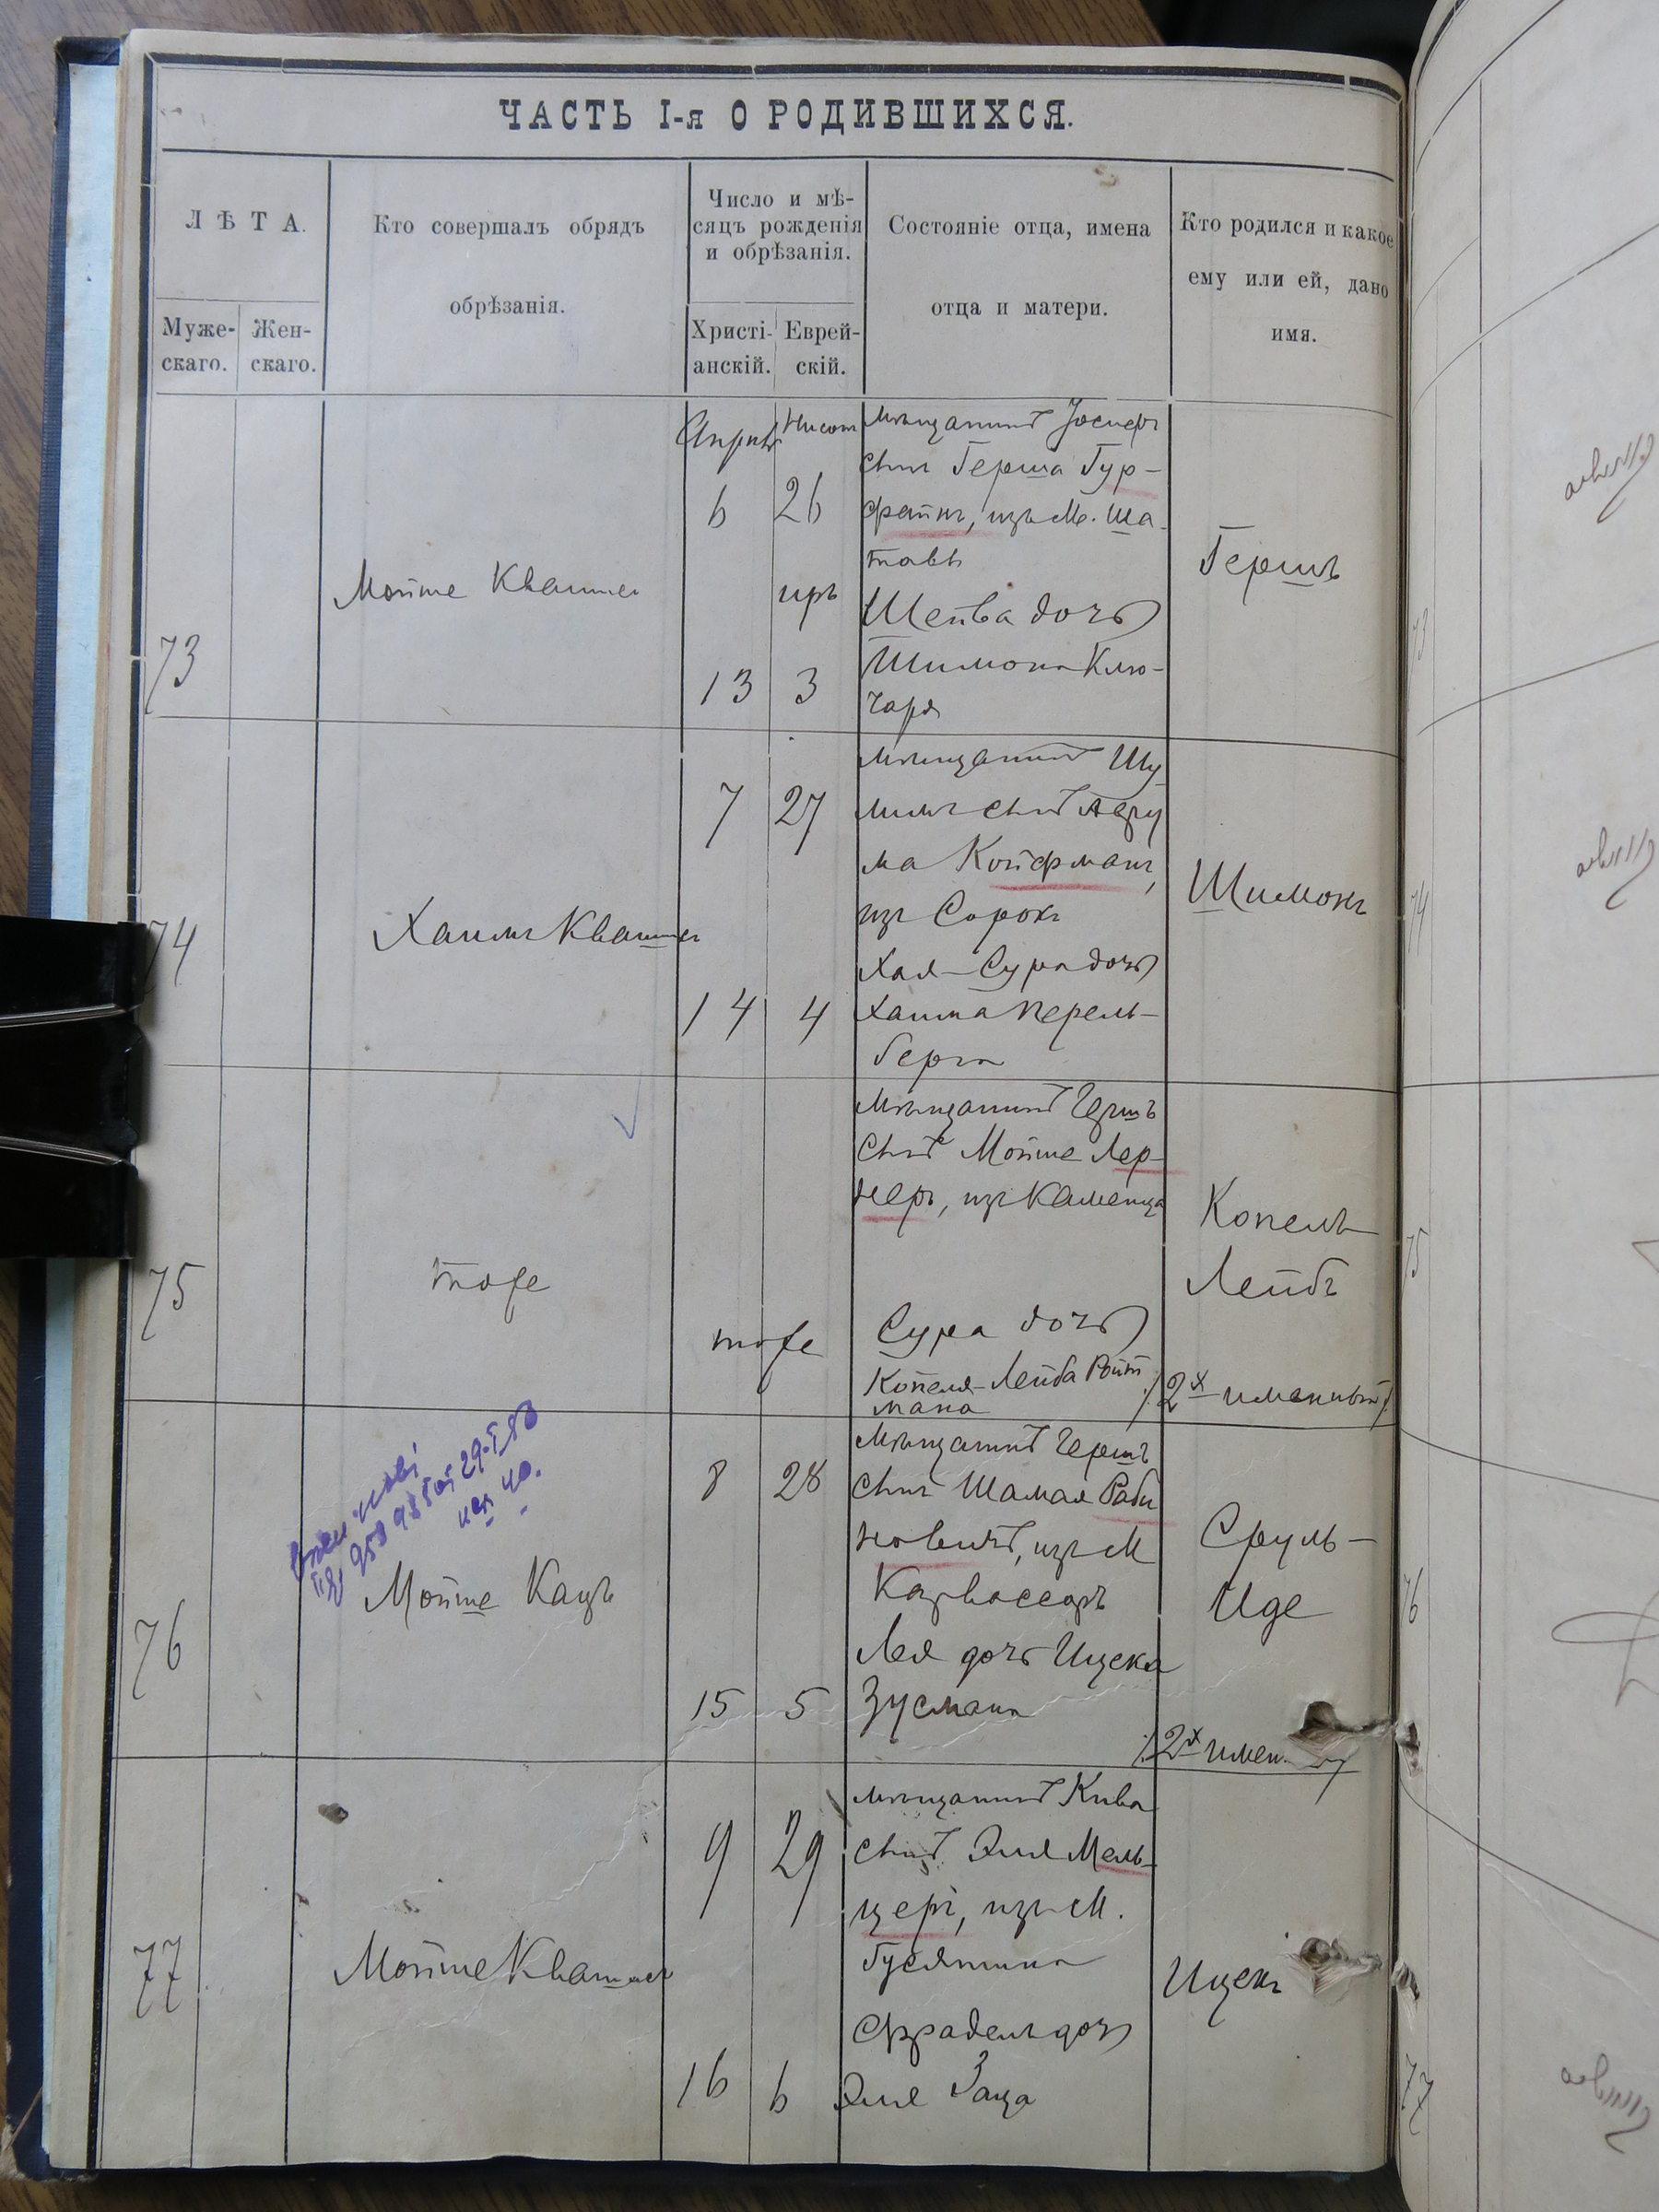 ЧАСТЬ I-я О РОДИВШИХСЯ.
ЛѢТА.
Муже-
скаго.
Жен-
скаго.
Кто совершалъ обрядъ
обрѣзанія.
Число и мѣ-
сяцъ рожденія
и обрѣзанія.
Христі-
анскій.
Еврей-
скій.
Состояніе отца, имена
отца и матери.
Кто родился и какое
ему или ей, дано
имя.
73
Мойше Квашня
Апрѣль
6
13
Нисонъ
26
иръ
3
мѣщанинъ Іосифъ
сынъ Герша Гур-
файнъ, изъ М. Ша-
тавы
Шейва дочь
Шимона Клю-
чаря
Гершъ
74
Хаимъ Квашня
7
14
27
4
мѣщанинъ Шу
лимъ сынъ Авру
ма Койфманъ,
изъ Сорокъ
Хая-Сура дочь
Хаима Перель-
берга
Шимонъ
75
тоже
тоже
Мѣщанинъ Гершъ
сынъ Мойше Лер-
неръ, изъ Каменца
Сура дочь
Копеля-Лейба Ройт
мана
Копель
Лейбъ
/2х именный/
76
29.I.58
Мойше Кацъ
8
15
28
5
Мѣщанинъ Гершъ
сынъ Шамая Раби
новичъ, изъ М
Лея дочь Ицека
Зусмана
Сруль-
Иде
77
Мойше Квашня
9
16
29
6
мѣщанинъ Кива
сынъ Эля Мель-
церъ, изъ М.
Гусятина
Фрадель дочь
Эля Заца
Ицекъ
73
74
75
76
77